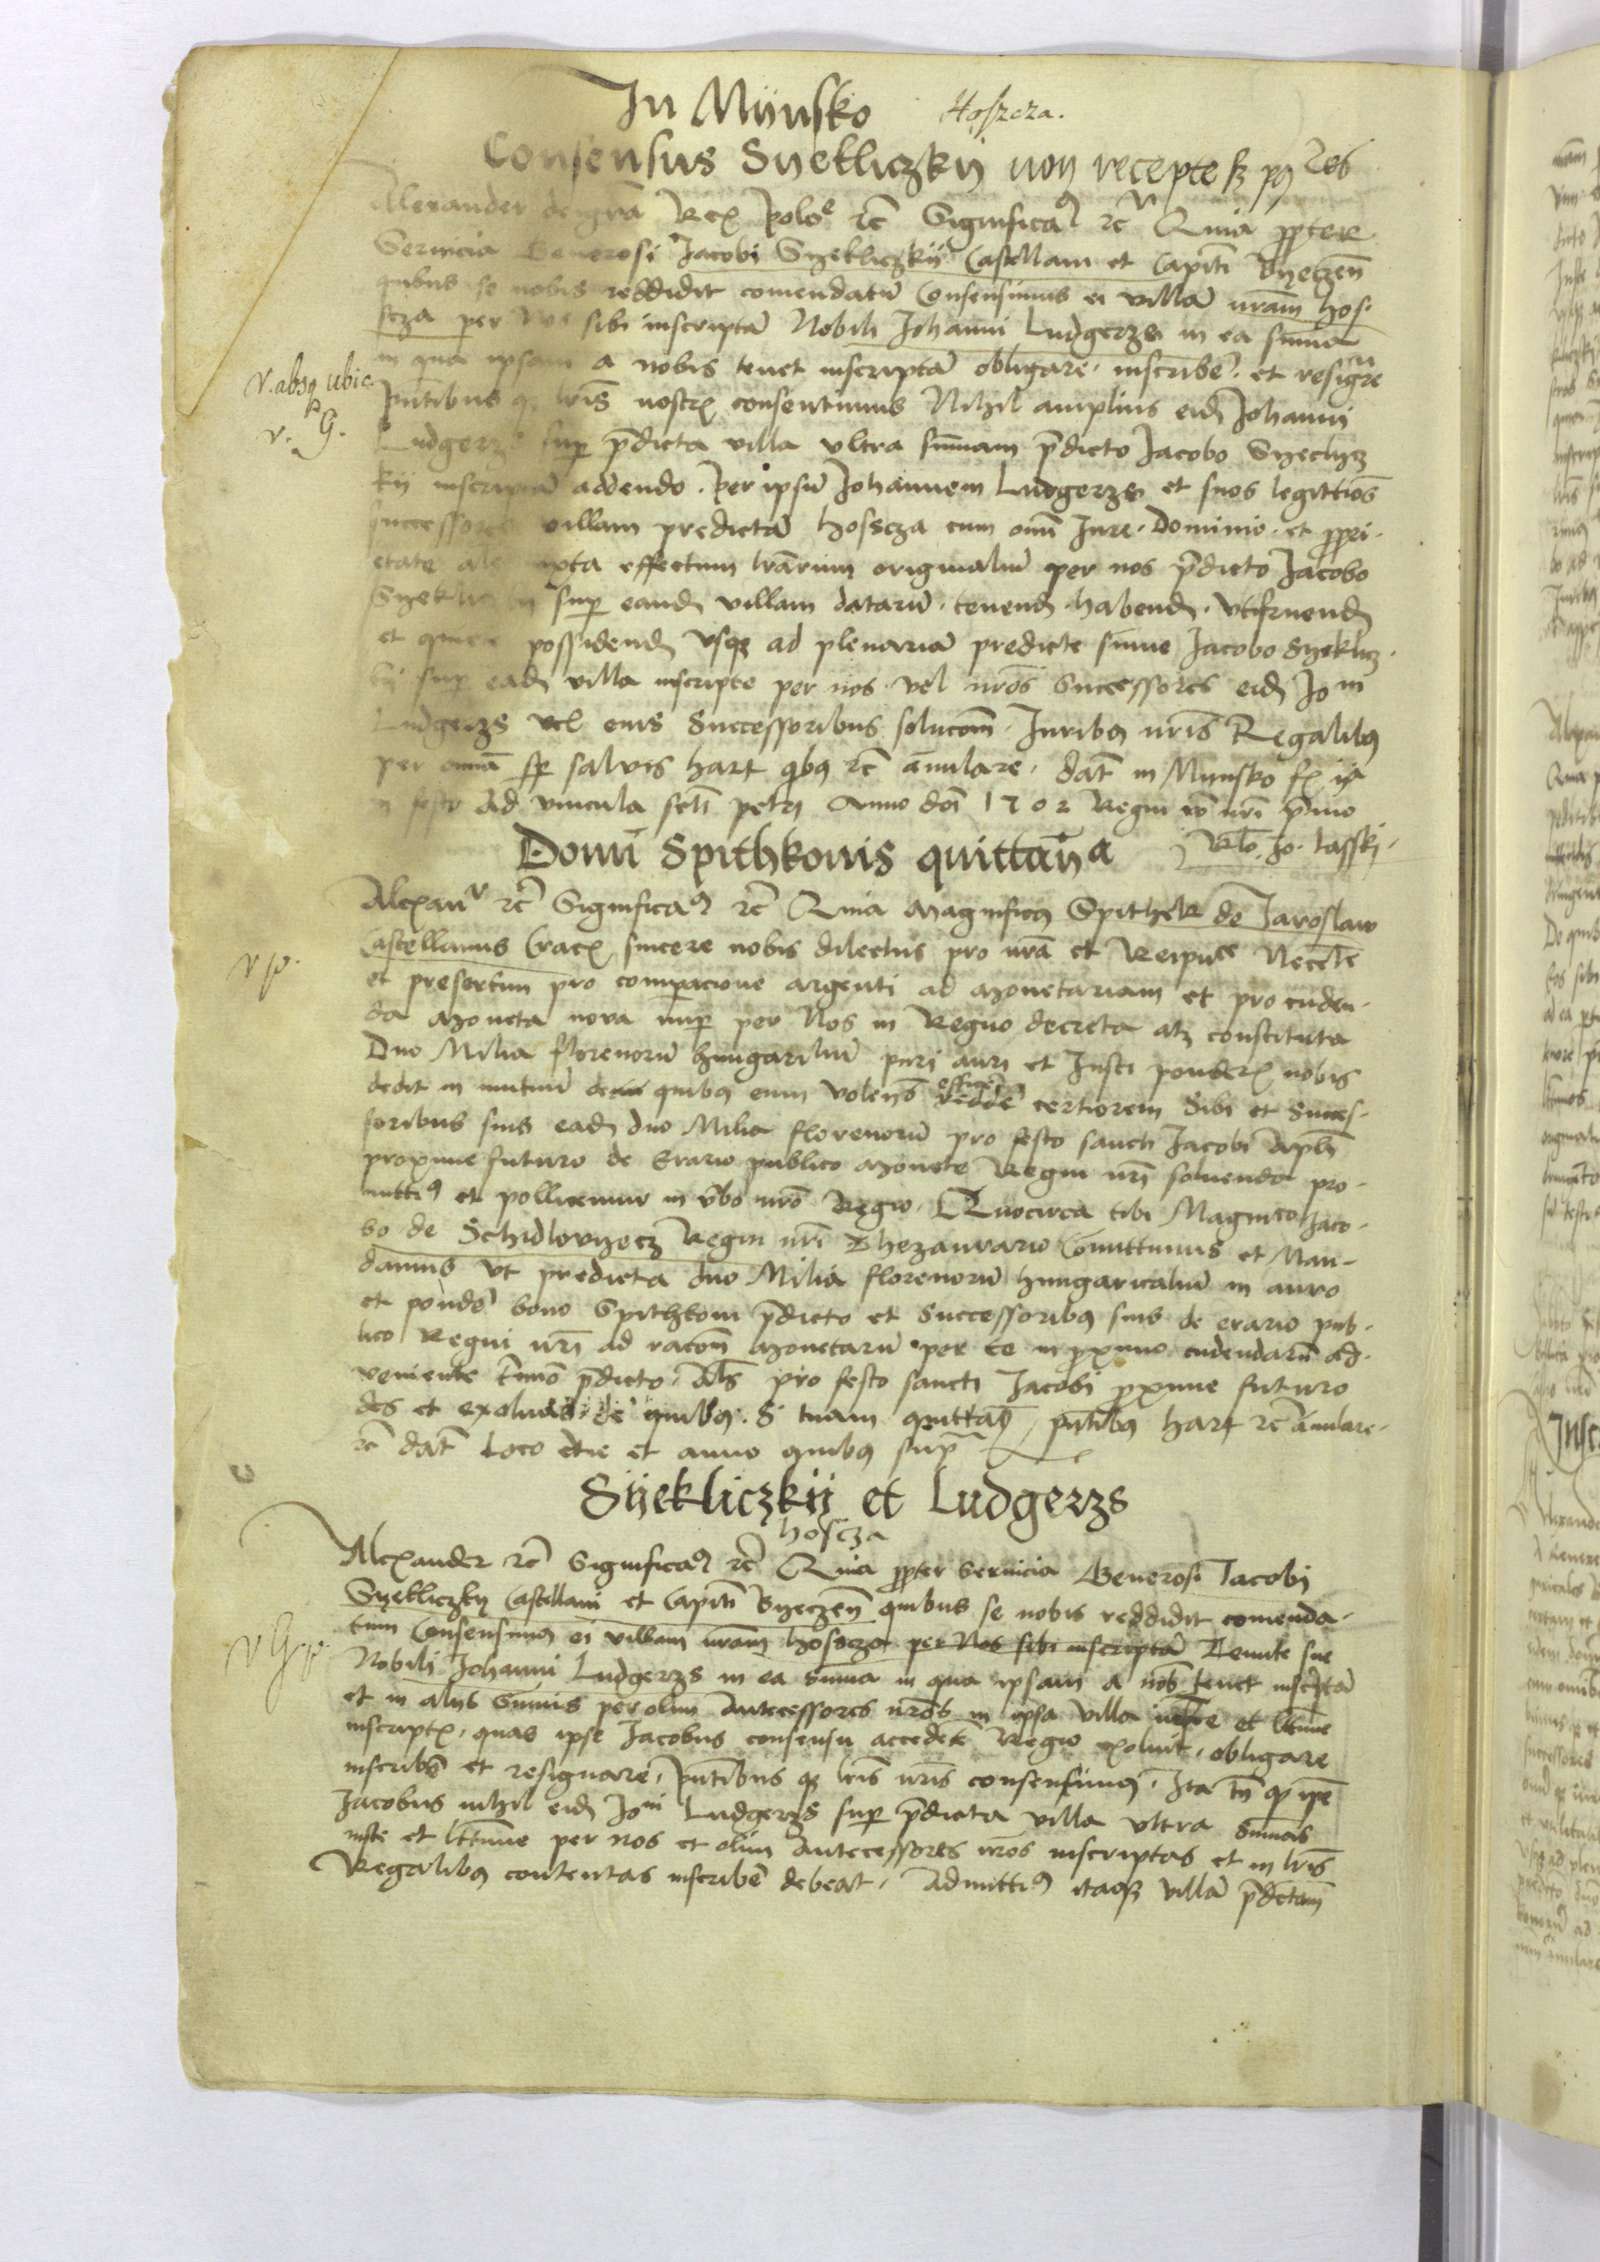 In Mijnsko Hoszcza.
Consensus Syekliczkij non recepte sz
Alexander dei grã Rex Poloe rc̃ Significaꝰ rc̃ Quia ꝓpter
Seruicia Generosi Jacobi Syekliczkij Castellani et Capitñ Byeczeñ
quibus se nobis reddidit comendatũ Consensimus ei villã nr̃am hos
scza per nos sibi inscriptã Nobili Johanni Ludgerzs in ea sum̃a
in qua ipsam a nobis tenet inscriptã obligare. inscribẽ. et resigre
pñtibus qz lr̃is nostrꝭ consentimus Nihil amplius eidẽ Johanni
Ludgerzs sup p̃dicta villa vltra sum̃am p̃dicto Jacobo Syeclicz
kij inscriptã addendo. Per ipsũ Johannem Ludgerzs et suos legittimos̃
successores villam predictã Hosscza cum om̃i Jure. Dominio. et ꝓpri.
etate ale iuxta effectum lr̃arum originaliũ per nos p̃dicto Jacobo
Syeklicz sup eandẽ villam datarũ. tenendẽ habendẽ. vtifruendẽ
et possidendẽ vsqz ad plenariã predicte sum̃e Jacobo Syeklicz.
kij sup eadẽ villa inscripte per nos vel nr̃os Successores eidẽ Jo ni
Ludgerzs vel eius Successoribus soluconẽ. Juribꝰ nr̃is Regalibꝰ
per om̃ia sp salvis Harꝝ qibꝰ rc̃ añulare. dat̃ in Mijnsko fꝭ ija
in festo Ad vincula scti petri Anno dñi 1502 Regni vo nr̃i p̃mo
Jo. Lasski.
Domi Spithkonis quittan̄a
Alexanr rc̃ Significaꝰ rc̃ Quia Magnificꝰ Spithek de Jaroslaw
Castellanus Cracꝭ sincere nobis dilectus pro nr̃a et Reipuce Necc̃te
et presertim pro comparacione argenti ad Monetariam et pro cuden.
da Moneta nova nup per Nos in Regno decreta atqz constituta
Duo Milia florenorũ hungariliũ puri auri et Justi ponderꝭ nobis
dedit in mutuũ de quibꝰ eum volen̄o efficẽ reddẽ certiorem Sibi et Succes.
soribus suis eadẽ duo Milia florenorũ pro festo sancti Jacobi Apl̃i
proxime futuro de Erario publico Monete Regni nr̃i soluendo pro.
mittiꝰ et pollicemur in v̄bo nr̃o Regio. Quocirca tibi Magnico Jaco.
bo de Schidlovyecz Regni nr̃i Thezaurario Comittimus et Man-
damus vt predicta duo Milia florenorũ hungaricaliũ in auro
et pondẽ bono Spithkoni p̃dicto et Successoribꝰ suis de erario pub.
lico Regni nr̃i ad racoñ Monetarũ per te in ꝓximo cudendarũ ad.
veniente tmĩo p̃dicto. Als̃ pro festo sancti Jacobi ꝓxime futuro
des et exoluas. de quibꝰ. S tuam quittabꝰ. pñtibꝰ harꝝ rc̃ añulare.
rc̃ dat̃ Loco die et anno quibus supra
Syekliczkij et Ludgerzs
hoscza
Alexander rc̃ Significaꝰ rc̃ Quia ꝓpter Seruicia Generosi Jacobi
Syekliczky Castellani et Capitñ Byeczeñ quibus se nobis reddidit comenda.
tum Consensimꝰ ei villam nr̃am Hosscza per Nos sibi inscriptã Tenute sue
Nobili Johanni Ludgerzs in ea sum̃a in qua ipsam a nob̃ tenet inscriptã
et in alijs sum̃is per olim Antecessores nr̃os in ipsa villa iuste et lttime
inscriptꝭ. quas ipse Jacobus consensu accedẽte Regio exoluit. obligare
inscribẽ et resignare. Pñtibus qz lr̃is nr̃is consensimꝰ. Ita tñ qd ipe
Jacobus nihil eidẽ Joni Ludgerzs sup p̃dicta villa vltra sum̃as
iuste et lttime per nos et olim Antecessores nr̃os inscriptas et in lr̃is
Regalibꝰ contentas inscribẽ debeat. Admittiꝰ itaqz villã p̃dictam